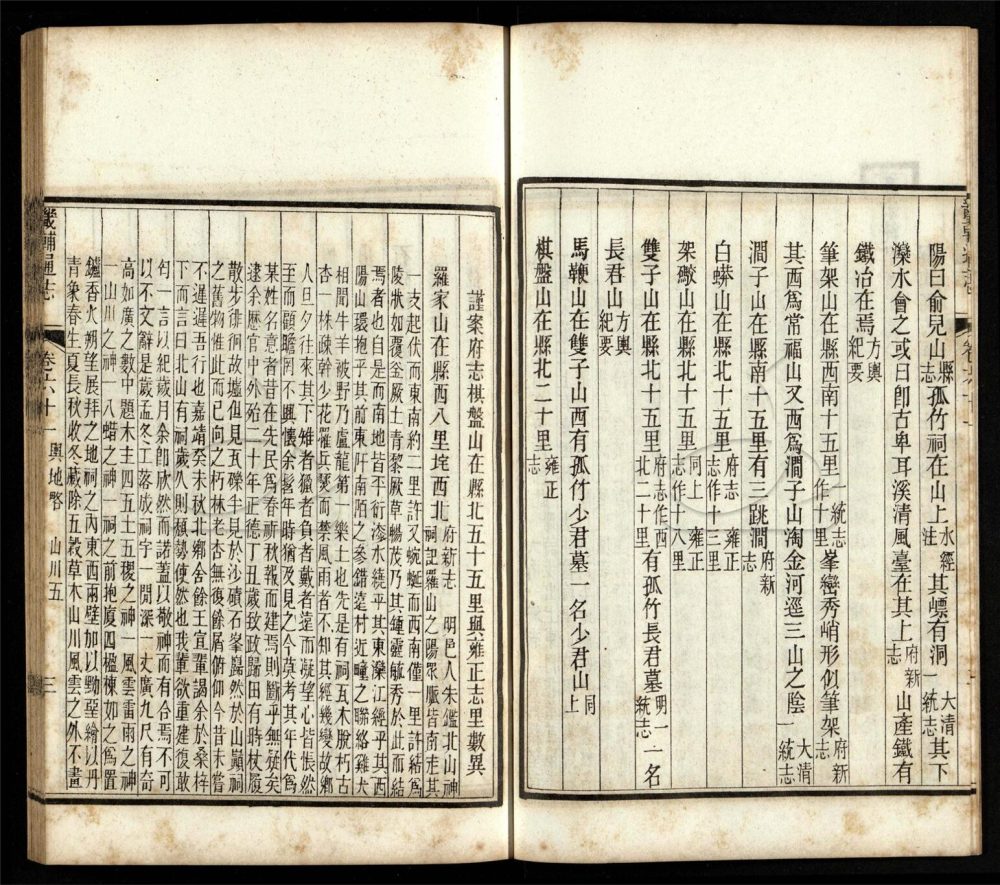 陽曰俞兒山縣志孤竹祠在山上水經注其嶂有洞大清一統志其下
灤水會之或曰卽古卑耳溪清風臺在其上府新志山產鐵有
鐵冶在焉方輿紀要
筆架山在縣西南十五里一統志作十里峯巒秀峭形似筆架府新志
其西爲常福山又西爲澗子山淘金河逕三山之陰大清一統志
澗子山在縣南十五里有三跳澗府新志
白蟒山在縣北十五里府志雍正志作十三里
架礮山在縣北十五里同上雍正志作十八里
雙子山在縣北十五里府志作西北二十里有孤竹長君墓明一統志一名
長君山方輿紀要
馬鞭山在雙子山西有孤竹少君墓一名少君山同上
棋盤山在縣北二十里雍正志
謹案府志棋盤山在縣北五十五里與雍正志里數異
羅家山在縣西八里坨西北府新志 明邑人朱鑑北山神祠記羅山之陽眾脈皆南走其
一支起伏而東南約二里許又蜿蜒而西南僅一里許結爲
陵狀如覆釜厥土青黎厥草暢茂乃其鍾靈毓秀於此而結
焉者也自是而南地皆平衍漆水繞乎其東灤江經乎其西
陽山環抱乎其前東阡南陌之參錯遠村近疃之聯絡雞犬
相聞牛羊被野乃盧龍第一樂土也先是有祠瓦木脫朽古
杏一株疎幹少花罹兵燹而禁風雨者不知其經幾變故鄉
人旦夕往來其下雉者獵者負者戴者遠而凝望心皆悵然
至而顧瞻罔不興懷余髫年時猶及見之今莫考其年代爲
某姓名意者昔在先民爲春祈秋報而建焉則斷乎無疑矣
逮余歷官中外殆二十年正德丁丑歲致政歸田有時杖履
散步徘徊故墟但見瓦礫半見於沙磧石峯巋然於山巔祠
之舊物惟此而已向之材林老杏無復餘屑俯仰今昔未嘗
不遲遲吾行也嘉靖癸未秋北鄉舍餘王宣輩謁余於桑梓
下而言曰北山有祠歲久則頹勢使然也我輩欲重建復敢
匄一言以紀歲月余卽欣然而諾蓋以敬神而有合焉不可
以不文辭是歲孟冬工落成祠宇一閒深一丈廣九尺有奇
高如廣之數中題木主四五土五稷之神一風雲雷雨之神
一山川之神一八蜡之神一祠之前抱廈四楹棟如之爲置
鑪香火朔望展拜之地祠之內東西兩壁加以黝堊繪以丹
青象春生夏長秋收冬藏除五穀草木山川風雲之外不畫
畿輔通志
卷六十一 輿地略 山川五
三